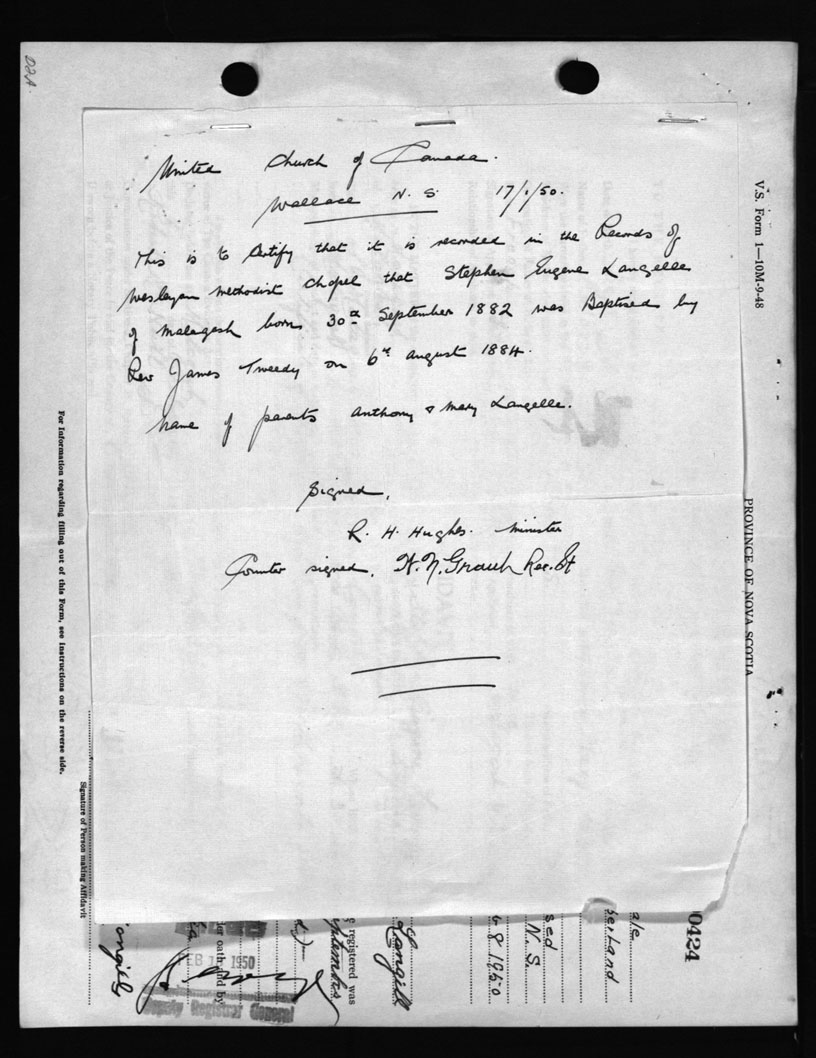 D2A.
United Church of Canada.
Wallace N. S. 17/1/50.
This is to Certify that it is recorded in the Records of
Wesleyan Methodist Chapel that Stephen Eugene Langelle
of Malagash born 30th September 1882 was Baptised by
Rev James Tweedy on 6th August 1884.
Name of parents Anthony & Mary Langelle.
Signed,
R. H. Hughes. Minister
Counter signed, Rec. St
V.S. Form 1—10M-9-48
PROVINCE OF NOVA SCOTIA
For Information regarding filling out of this Form, see Instructions on the reverse side.
Signature of Person making Affidavit
0424
ale
berland
sed
N. S.
8 1950
Langill
e registered was
eptember
d by
er oath
1950
Deputy Registrar General
angille